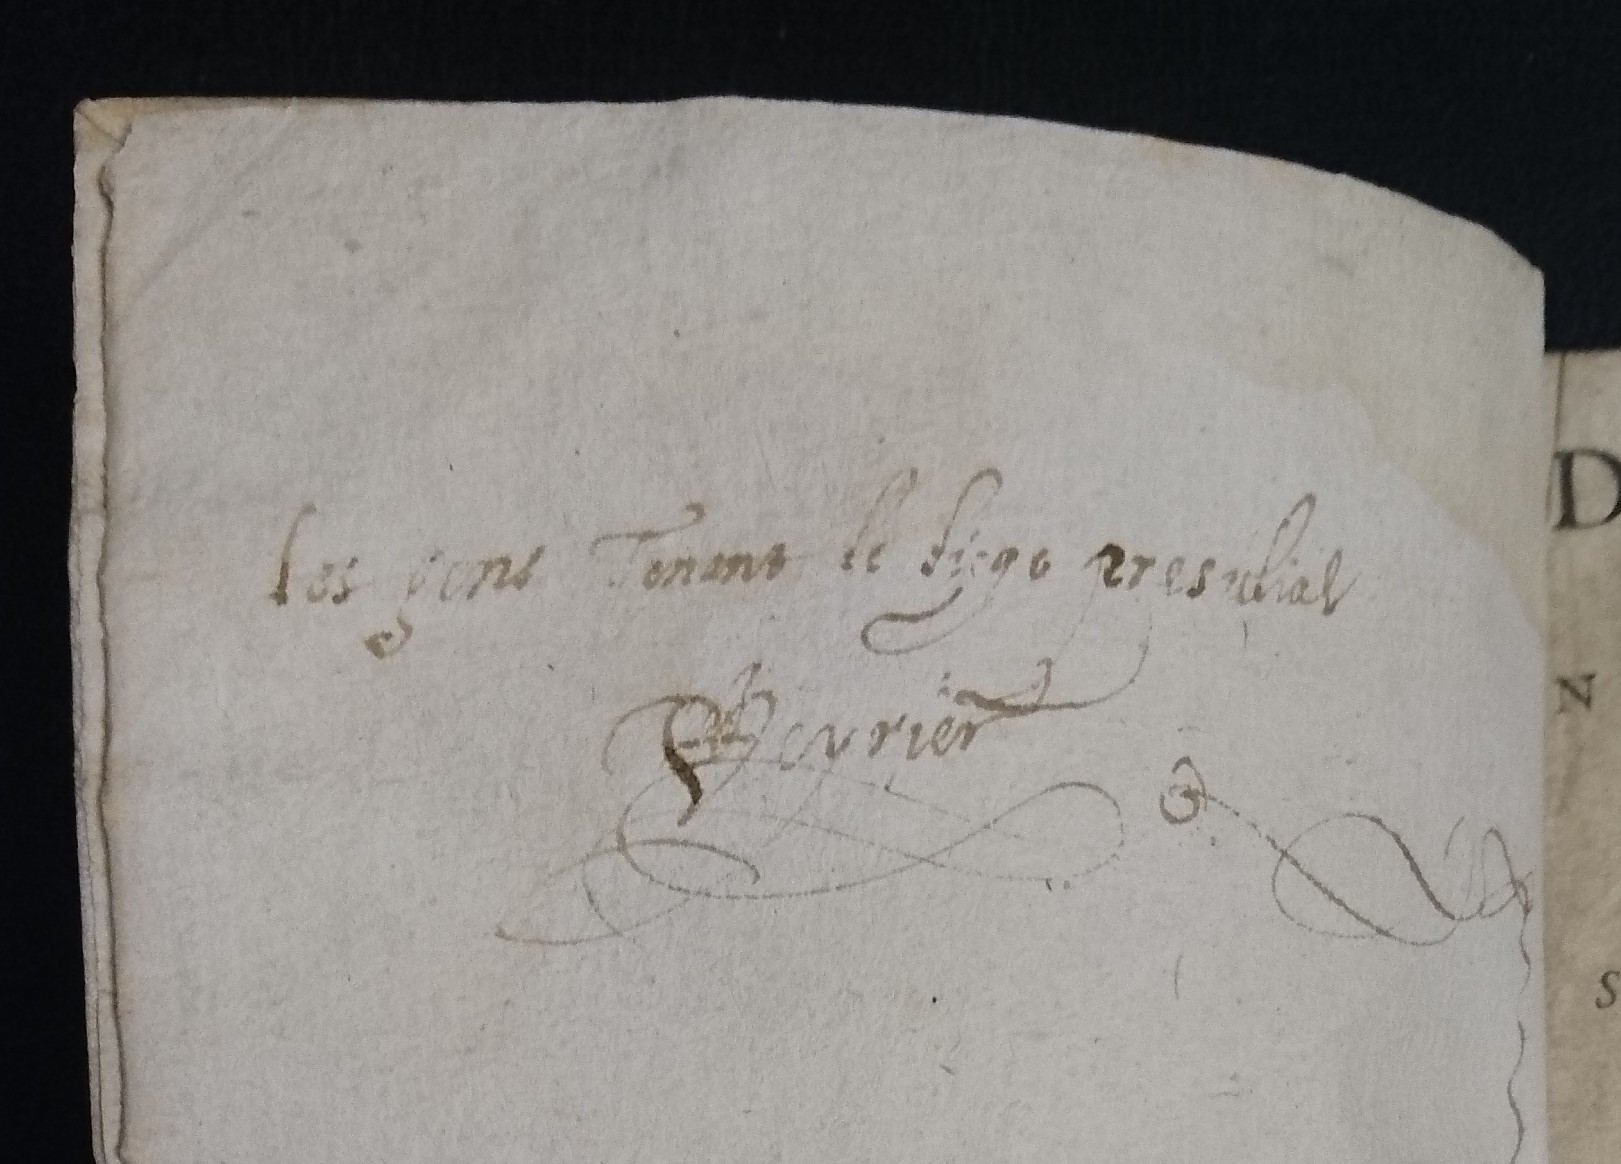 les gens Tenant le siege presidial
Fevrier
D
N
S